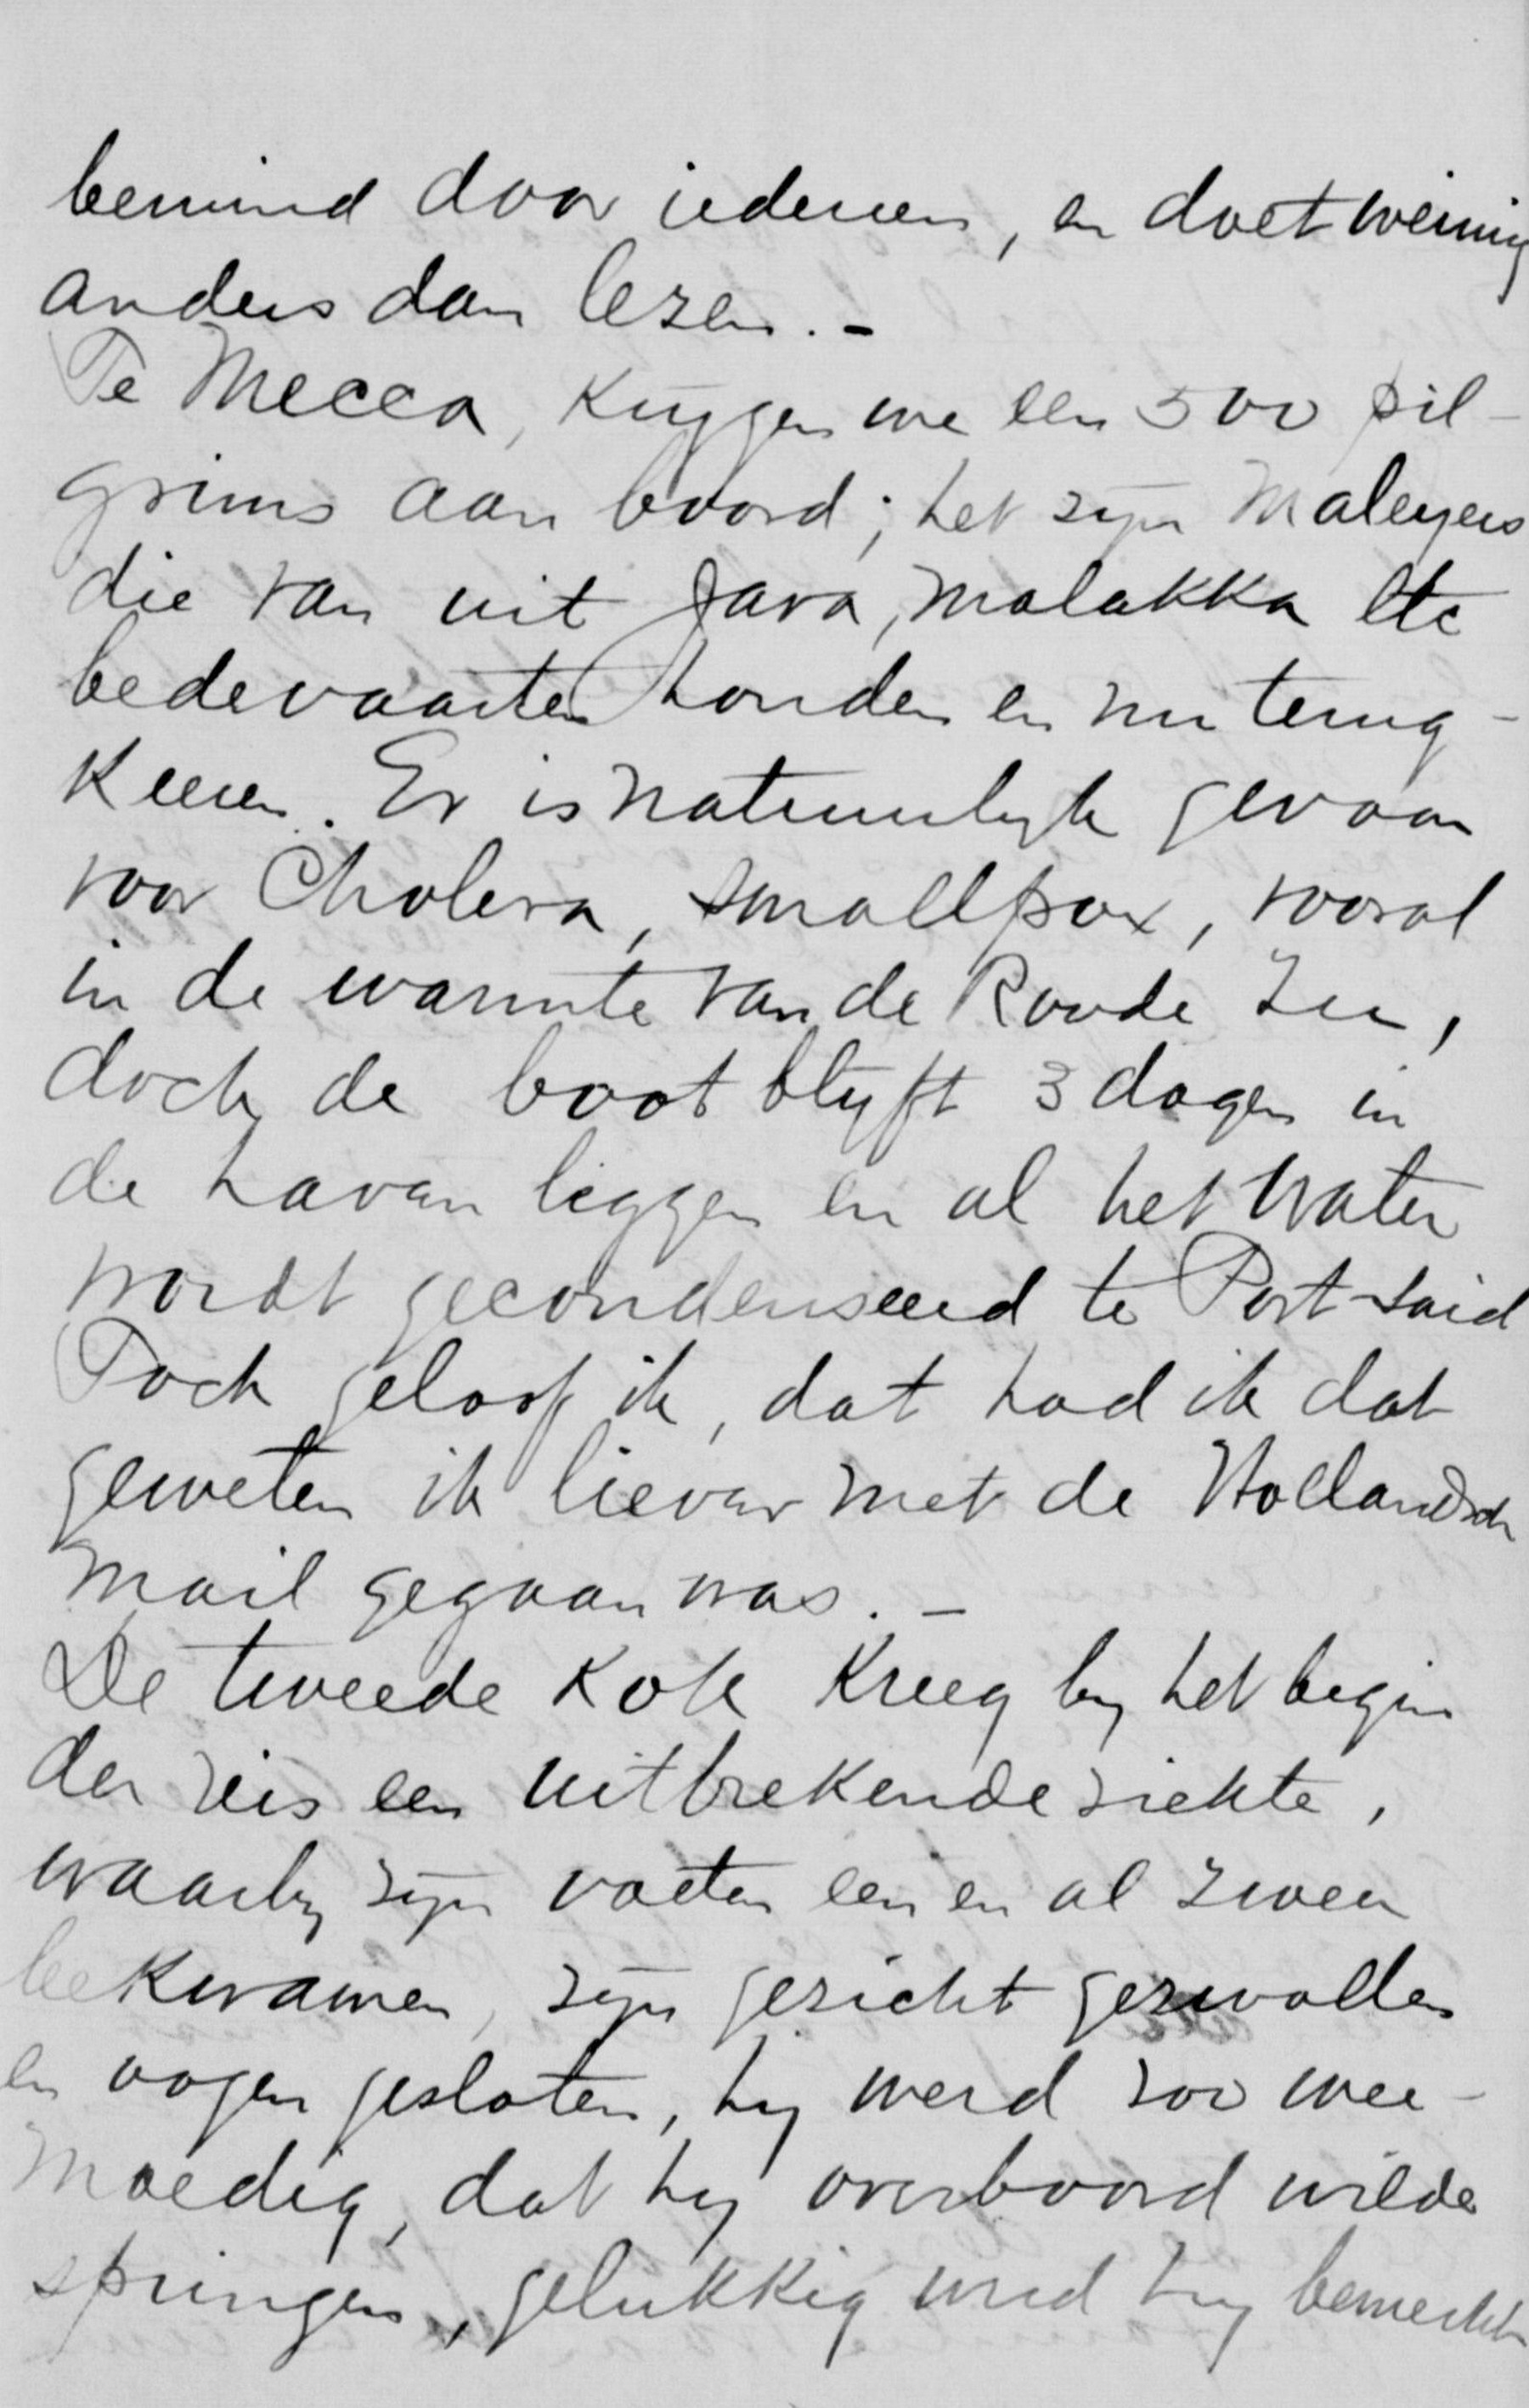 bemind door iedereen, en doet weinig
anders dan lezen. -
Te Mecca, krygen we een 500 pil-
grims aan boord; het zyn Maleyers
die van uit Java, Malakka etc
bedevaarten houden en nu terug-
keeren. Er is natuurlyk gevaar
voor Cholera, smallpox, vooral
in de warmte van de Roode Zee,
doch de boot blyft 3 dagen in
de haven liggen en al het water
wordt gecondenseerd te Port-Said
Toch geloof ik, dat had ik dat
geweten ik liever met de Hollandsch
mail gegaan was. -
De tweede Kok kreeg by het begin
der reis een uitbrekende ziekte,
waarby zyn voeten een en al zweer
bekwamen, zyn gezicht gezwollen
en oogen gesloten, hy werd zoo wee-
moedig, dat hy overboord wilde
springen, gelukkig werd hy bemerkt